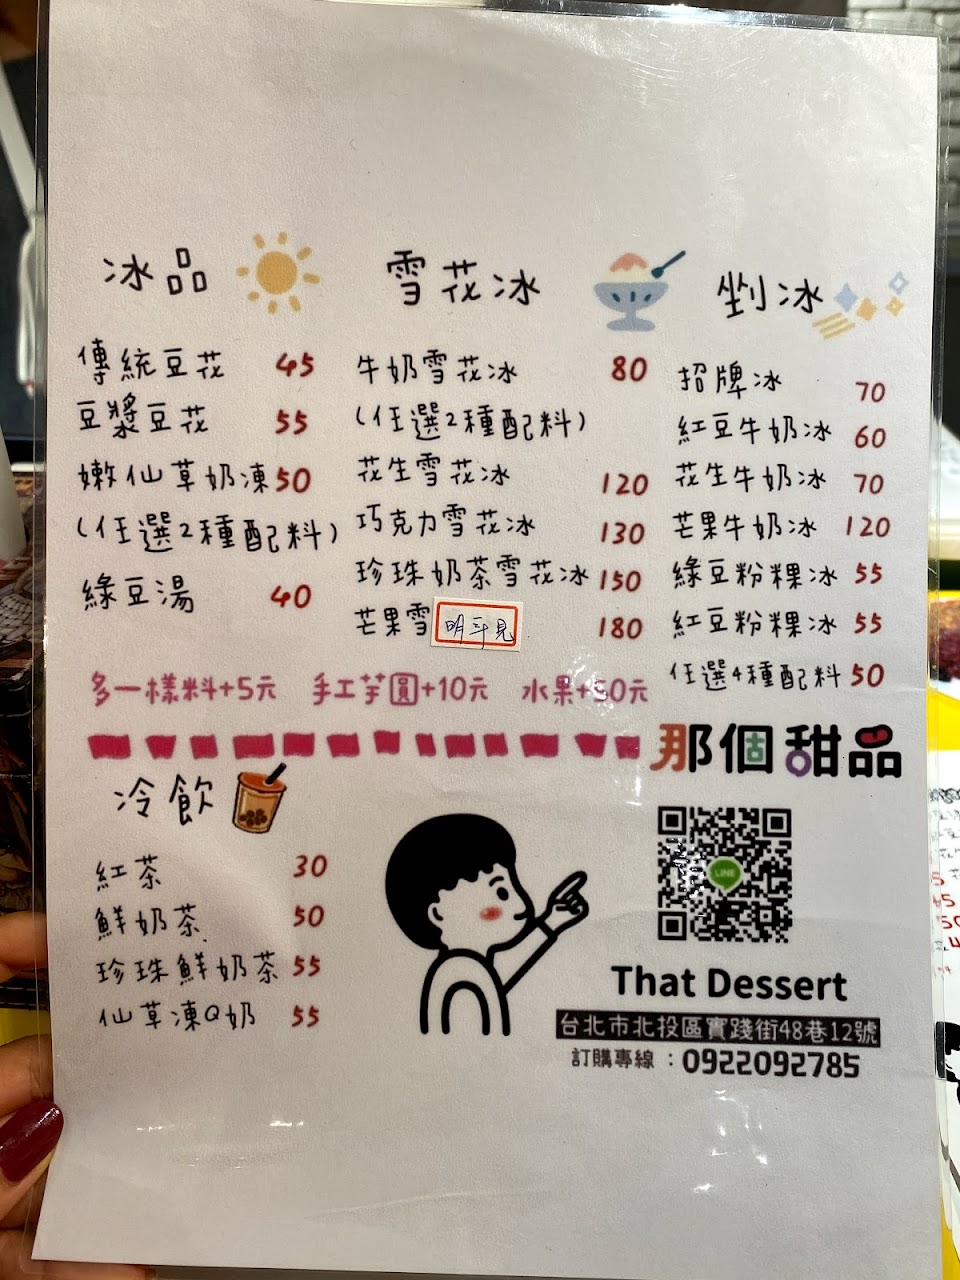 冰品
傳統豆花 45
豆漿豆花 55
嫩仙草奶凍 50
(任選2種配料)
綠豆湯 40
雪花冰
牛奶雪花冰 80
(任選2種配料)
花生雪花冰 120
巧克力雪花冰 130
珍珠奶茶雪花冰 150
芒果雪 明年見 180
剉冰
招牌冰 70
紅豆牛奶冰 60
花生牛奶冰 70
芒果牛奶冰 120
綠豆粉粿冰 55
紅豆粉粿冰 55
任選4種配料 50
多一樣料+5元 手工芋圓+10元 水果+50元
那個甜品
冷飲
紅茶 30
鮮奶茶 50
珍珠鮮奶茶 55
仙草凍Q奶 55
LINE
That Dessert
台北市北投區實踐街48巷12號
訂購專線：0922092785